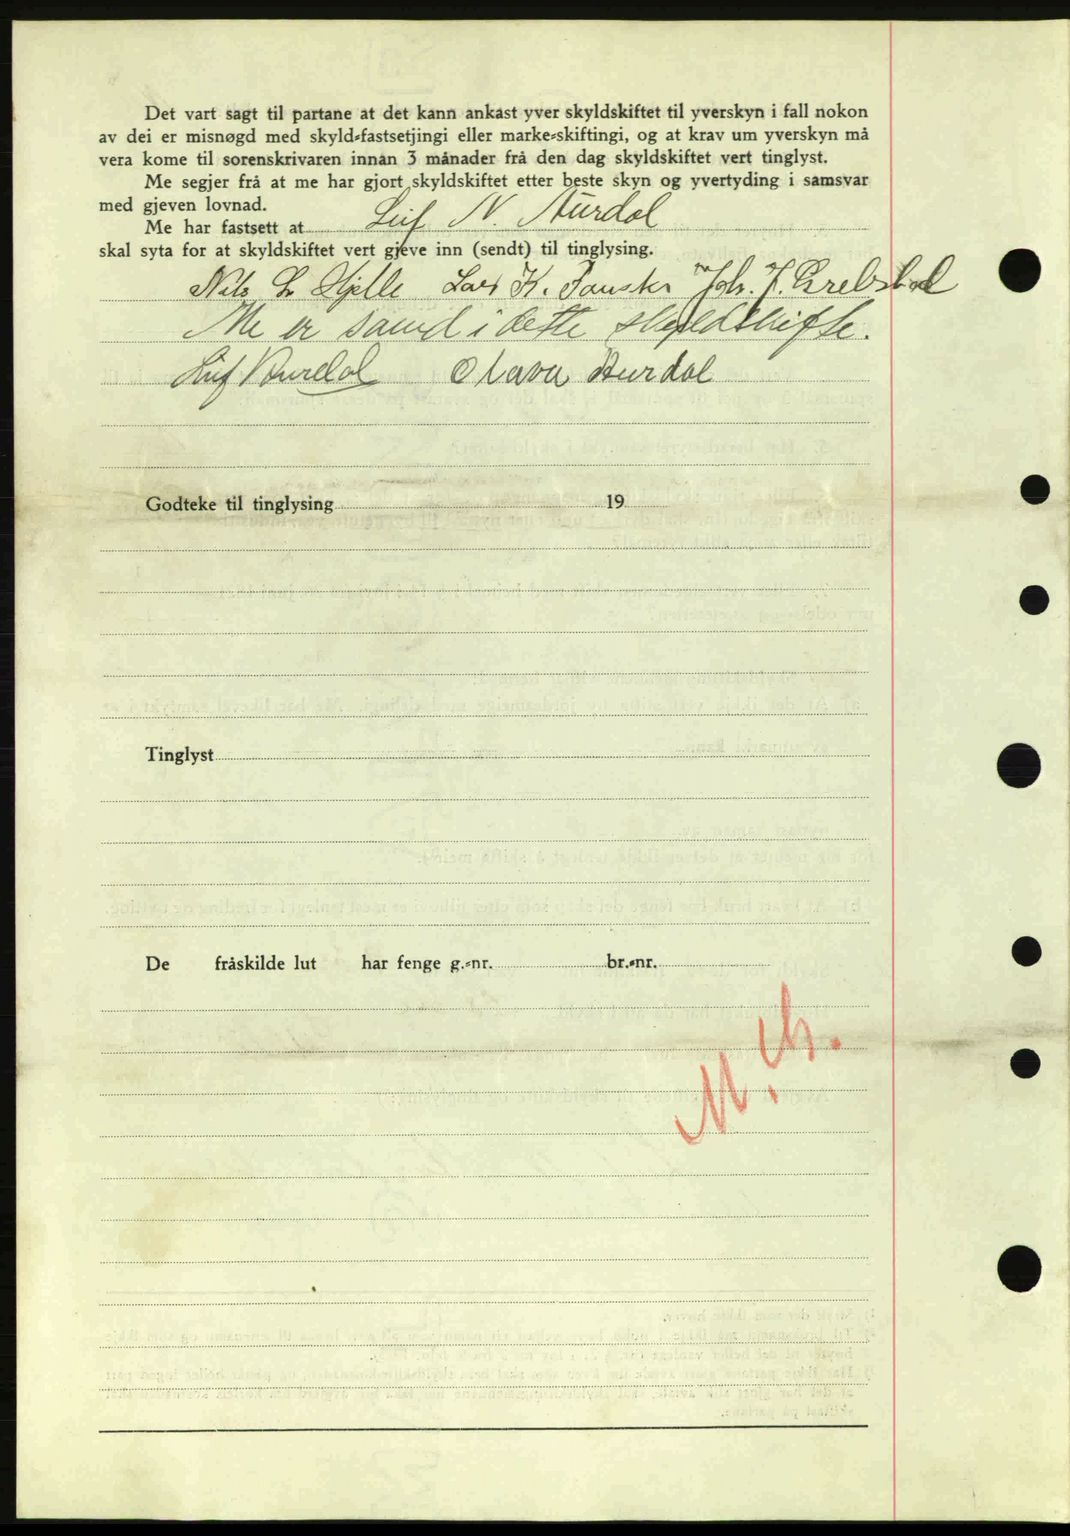 Det vart sagt til partane at det kann ankast yver skyldskiftet til yverskyn i fall nokon
av dei er misnøgd med skyld-fastsetjingi eller marke-skiftingi, og at krav um yverskyn må
vera kome til sorenskrivaren innan 3 månader frå den dag skyldskiftet vert tinglyst.
Me segjer frå at me har gjort skyldskiftet etter beste skyn og yvertyding i samsvar
med gjeven lovnad.
Me har fastsett at Leif N. Aurdal
skal syta for at skyldskiftet vert gjeve inn (sendt) til tinglysing.
Nils L. Hjelle Lars K. Tausker Joh. J. Grebstad
Me er samd i dette skyldskifte.
Leif Aurdal Olava Aurdal
Godteke til tinglysing 19
Tinglyst
De fråskilde lut har fenge g.-nr. br.-nr.